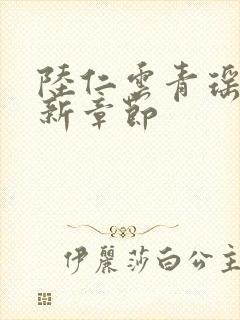 陸仁雲青瑶
新章節
伊麗莎白公主